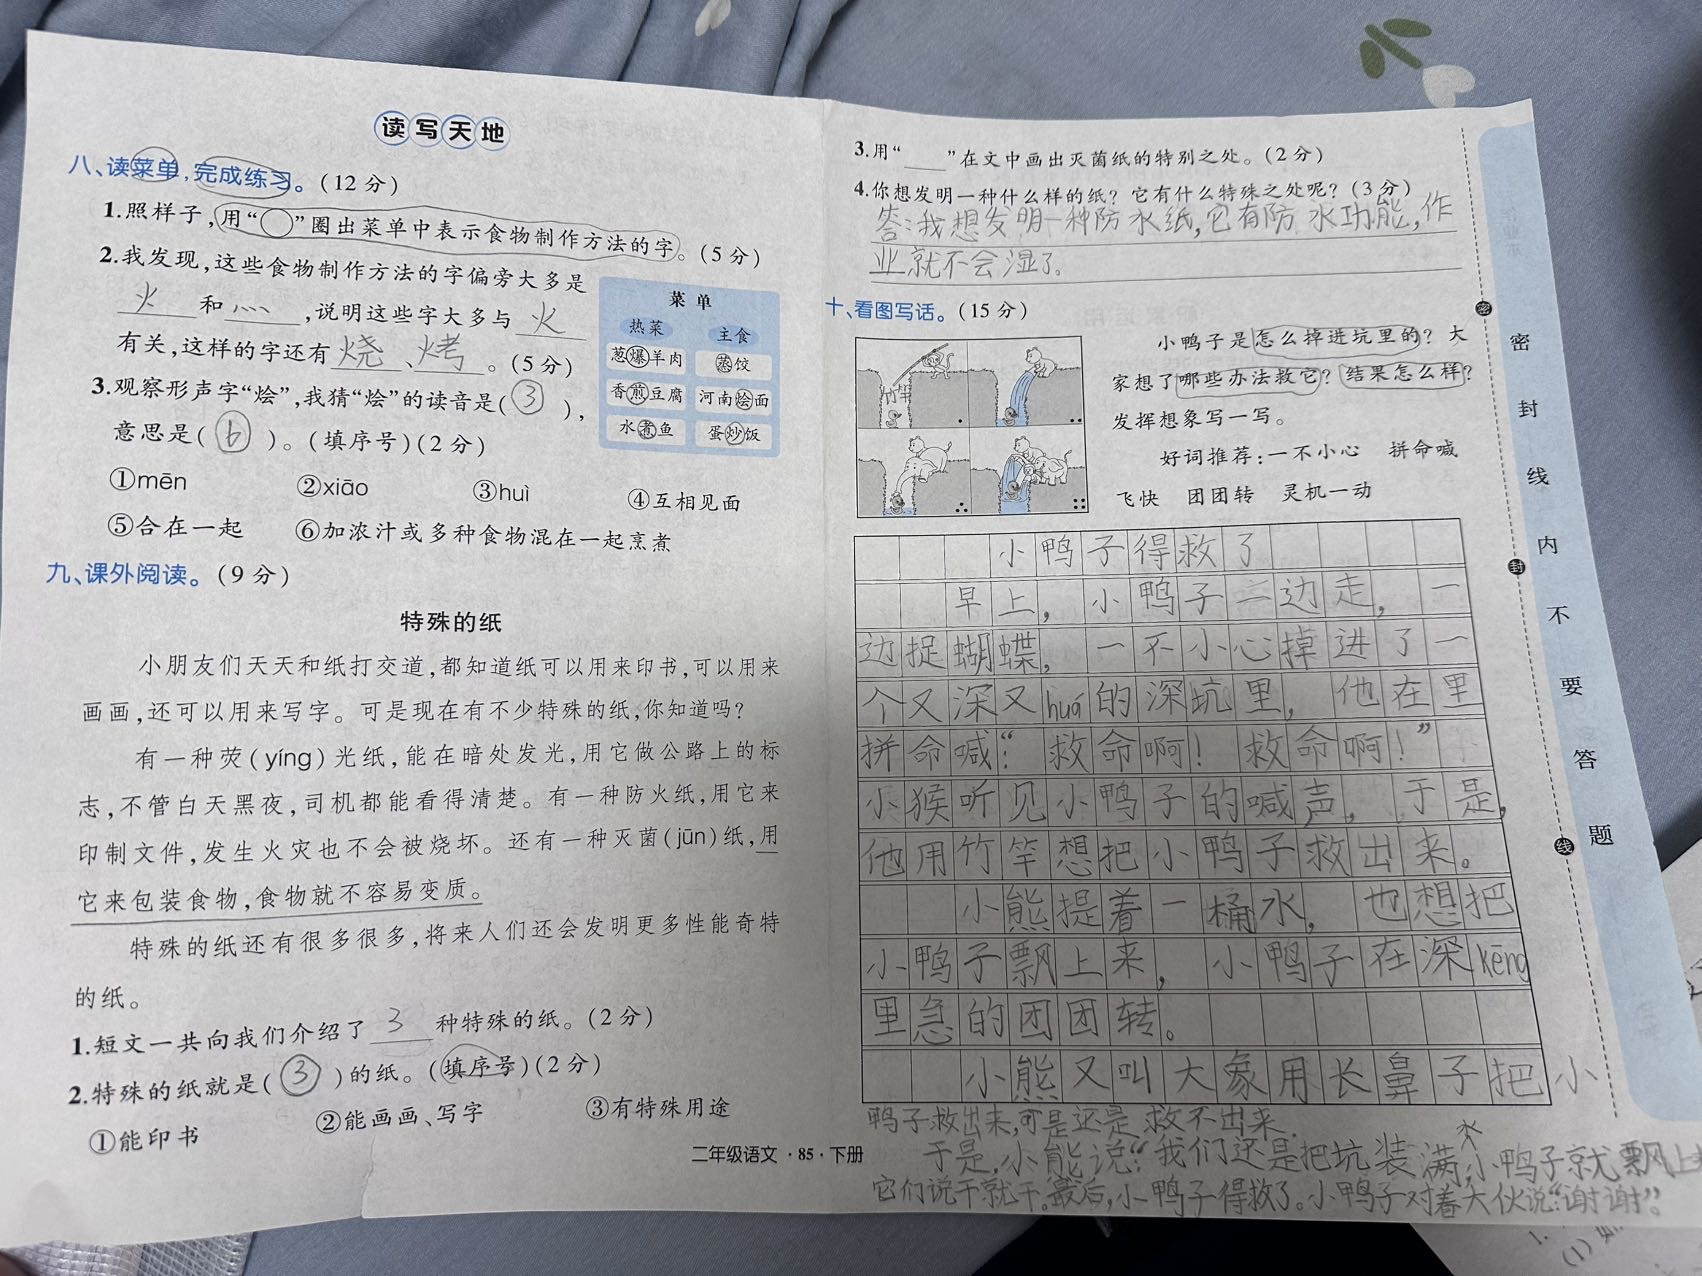 读写天地
八、读菜单,完成练习。(12分)
1.照样子,用“○”圈出菜单中表示食物制作方法的字。(5分)
2.我发现,这些食物制作方法的字偏旁大多是
火 和 灬 ,说明这些字大多与 火
有关,这样的字还有 烧 、 烤 。(5分)
3.观察形声字“烩”,我猜“烩”的读音是( ③ ),
意思是( 6 )。(填序号)(2分)
菜单
热菜 主食
葱爆羊肉 蒸饺
香煎豆腐 河南烩面
水煮鱼 蛋炒饭
①mēn ②xiāo ③huì ④互相见面
⑤合在一起 ⑥加浓汁或多种食物混在一起烹煮
九、课外阅读。(9分)
特殊的纸
小朋友们天天和纸打交道,都知道纸可以用来印书,可以用来
画画,还可以用来写字。可是现在有不少特殊的纸,你知道吗?
有一种荧(yíng)光纸,能在暗处发光,用它做公路上的标
志,不管白天黑夜,司机都能看得清楚。有一种防火纸,用它来
印制文件,发生火灾也不会被烧坏。还有一种灭菌(jūn)纸,用
它来包装食物,食物就不容易变质。
特殊的纸还有很多很多,将来人们还会发明更多性能奇特
的纸。
1.短文一共向我们介绍了 3 种特殊的纸。(2分)
2.特殊的纸就是( ③ )的纸。(填序号)(2分)
①能印书 ②能画画、写字 ③有特殊用途
二年级语文·85·下册
3.用“___”在文中画出灭菌纸的特别之处。(2分)
4.你想发明一种什么样的纸?它有什么特殊之处呢?(3分)
答:我想发明一种防水纸,它有防水功能,作
业就不会湿了。
十、看图写话。(15分)
小鸭子是怎么掉进坑里的?大
家想了哪些办法救它?结果怎么样?
发挥想象写一写。
好词推荐:一不小心 拼命喊
飞快 团团转 灵机一动
小鸭子得救了
早上,小鸭子一边走,一
边捉蝴蝶,一不小心掉进了一
个又深又huá的深坑里,他在里
拼命喊:“救命啊!救命啊!”
小猴听见小鸭子的喊声,于是,
他用竹竿想把小鸭子救出来。
小熊提着一桶水,也想把
小鸭子飘上来,小鸭子在深kēng
里急的团团转。
小熊又叫大象用长鼻子把小
鸭子救出来,可是还是救不出来.
于是,小能说:“我们还是把坑装满水,小鸭子就飘上
它们说干就干。最后,小鸭子得救了。小鸭子对着大伙说:“谢谢”。
密封线内不要答题
密
封
线